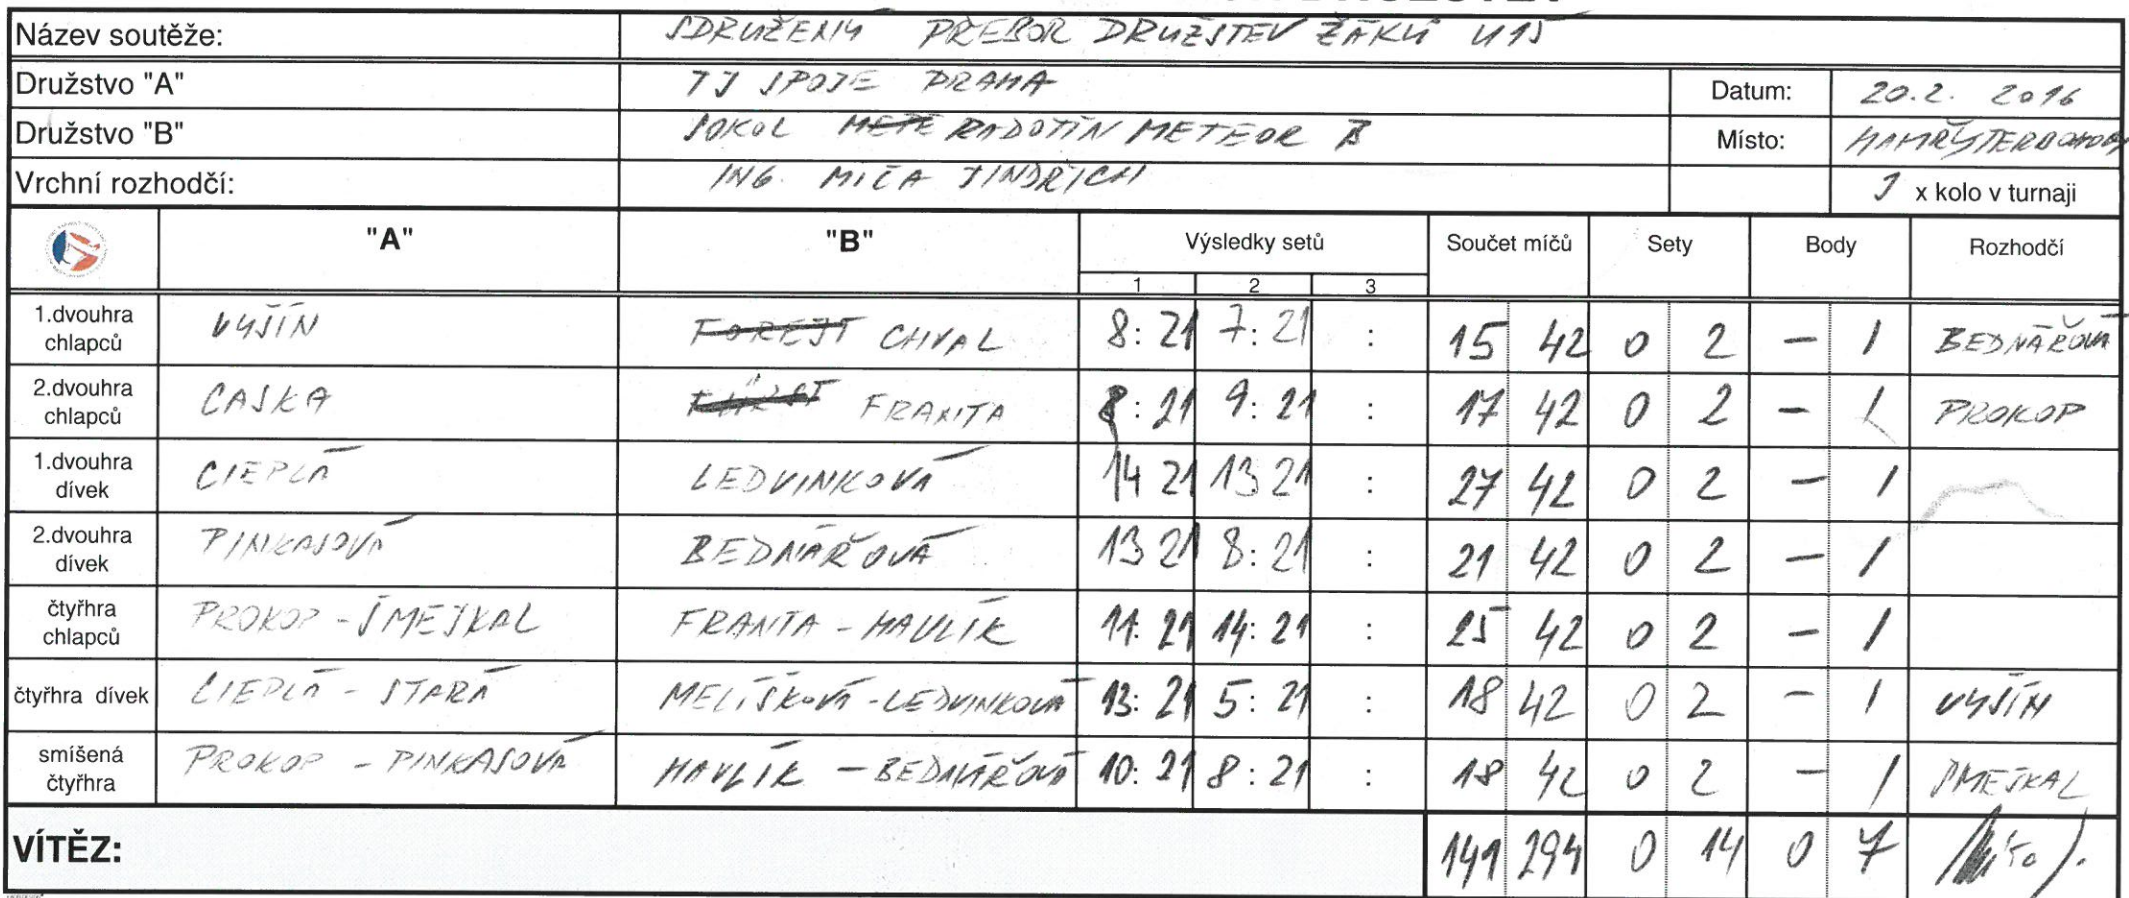 Název soutěže: SDRUŽENÝ PŘEBOR DRUŽSTEV ŽÁKŮ U15
Družstvo "A" TJ SPOJE PRAHA Datum: 20.2. 2016
Družstvo "B" SOKOL METE RADOTÍN METEOR B Místo:
Vrchní rozhodčí: ING. MIČA JINDŘICH x kolo v turnaji
"A" "B" Výsledky setů Součet míčů Sety Body Rozhodčí
1 2 3
1.dvouhra chlapců VYŠÍN FOREJT CHVAL 8:21 7:21 : 15 42 0 2 – 1 BEDNÁŘOVÁ
2.dvouhra chlapců CASKA FRANTA 8:21 9:21 : 17 42 0 2 – 1 PROKOP
1.dvouhra dívek CIEPLÁ LEDVINKOVÁ 14 21 13 21 : 27 42 0 2 – 1
2.dvouhra dívek PINKASOVÁ BEDNÁŘOVÁ 13 21 8:21 : 21 42 0 2 – 1
čtyřhra chlapců PROKOP - SMEJKAL FRANTA - HAVLÍK 11:21 14:21 : 25 42 0 2 – 1
čtyřhra dívek CIEPLÁ - STARÁ MELÍŠKOVÁ - LEDVINKOVÁ 13:21 5:21 : 18 42 0 2 – 1 VYŠÍN
smíšená čtyřhra PROKOP - PINKASOVÁ HAVLÍK - BEDNÁŘOVÁ 10:21 8:21 : 18 42 0 2 – 1 SMEJKAL
VÍTĚZ: 141 294 0 14 0 7